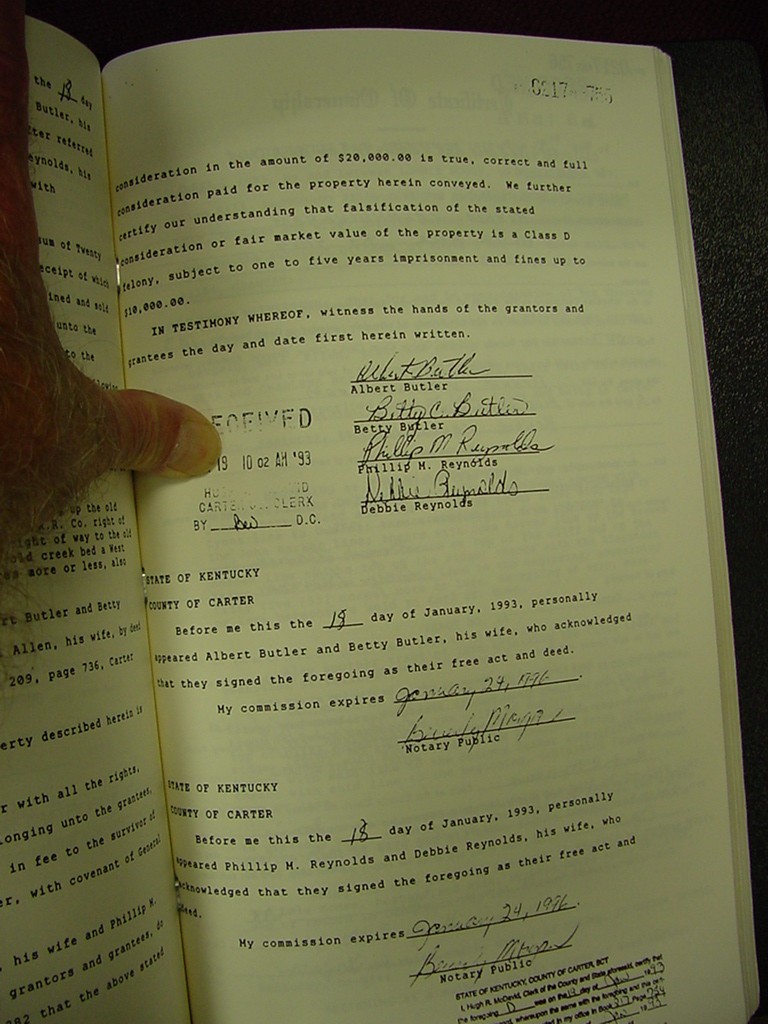 the 18 day
Butler, his
referred
eynolds, his
with
um of Twenty
eceipt of which
ined and sold
unto the
to the
up the old
R.R. Co. right of
ight of way to the old
old creek bed a West
more or less, also
rt Butler and Betty
Allen, his wife, by deed
209, page 736, Carter
erty described herein is
r with all the rights,
longing unto the grantees,
in fee to the survivor of
er, with covenant of General
his wife and Phillip M.
grantors and grantees, do
382 that the above stated
0217
consideration in the amount of $20,000.00 is true, correct and full
consideration paid for the property herein conveyed. We further
certify our understanding that falsification of the stated
consideration or fair market value of the property is a Class D
felony, subject to one to five years imprisonment and fines up to
$10,000.00.
IN TESTIMONY WHEREOF, witness the hands of the grantors and
grantees the day and date first herein written.
Albert Butler
Albert Butler
Betty C. Butler
Betty Butler
Phillip M Reynolds
Phillip M. Reynolds
Debbie Reynolds
Debbie Reynolds
ECEIVED
19 10 02 AM '93
CLERK
BY D.C.
STATE OF KENTUCKY
COUNTY OF CARTER
Before me this the 18 day of January, 1993, personally
appeared Albert Butler and Betty Butler, his wife, who acknowledged
that they signed the foregoing as their free act and deed.
My commission expires January 24, 1996.
Beverly Morgan
Notary Public
STATE OF KENTUCKY
COUNTY OF CARTER
Before me this the 18 day of January, 1993, personally
appeared Phillip M. Reynolds and Debbie Reynolds, his wife, who
acknowledged that they signed the foregoing as their free act and
deed.
My commission expires January 24, 1996.
Beverly Morgan
Notary Public
STATE OF KENTUCKY, COUNTY OF CARTER, SCT
I, Hugh R. McDavid, Clerk of the County and State aforesaid, certify that
the foregoing was on the 19 day of Jan 1993
record, whereupon the same with the foregoing and this
in my office in Book 217 Page 754